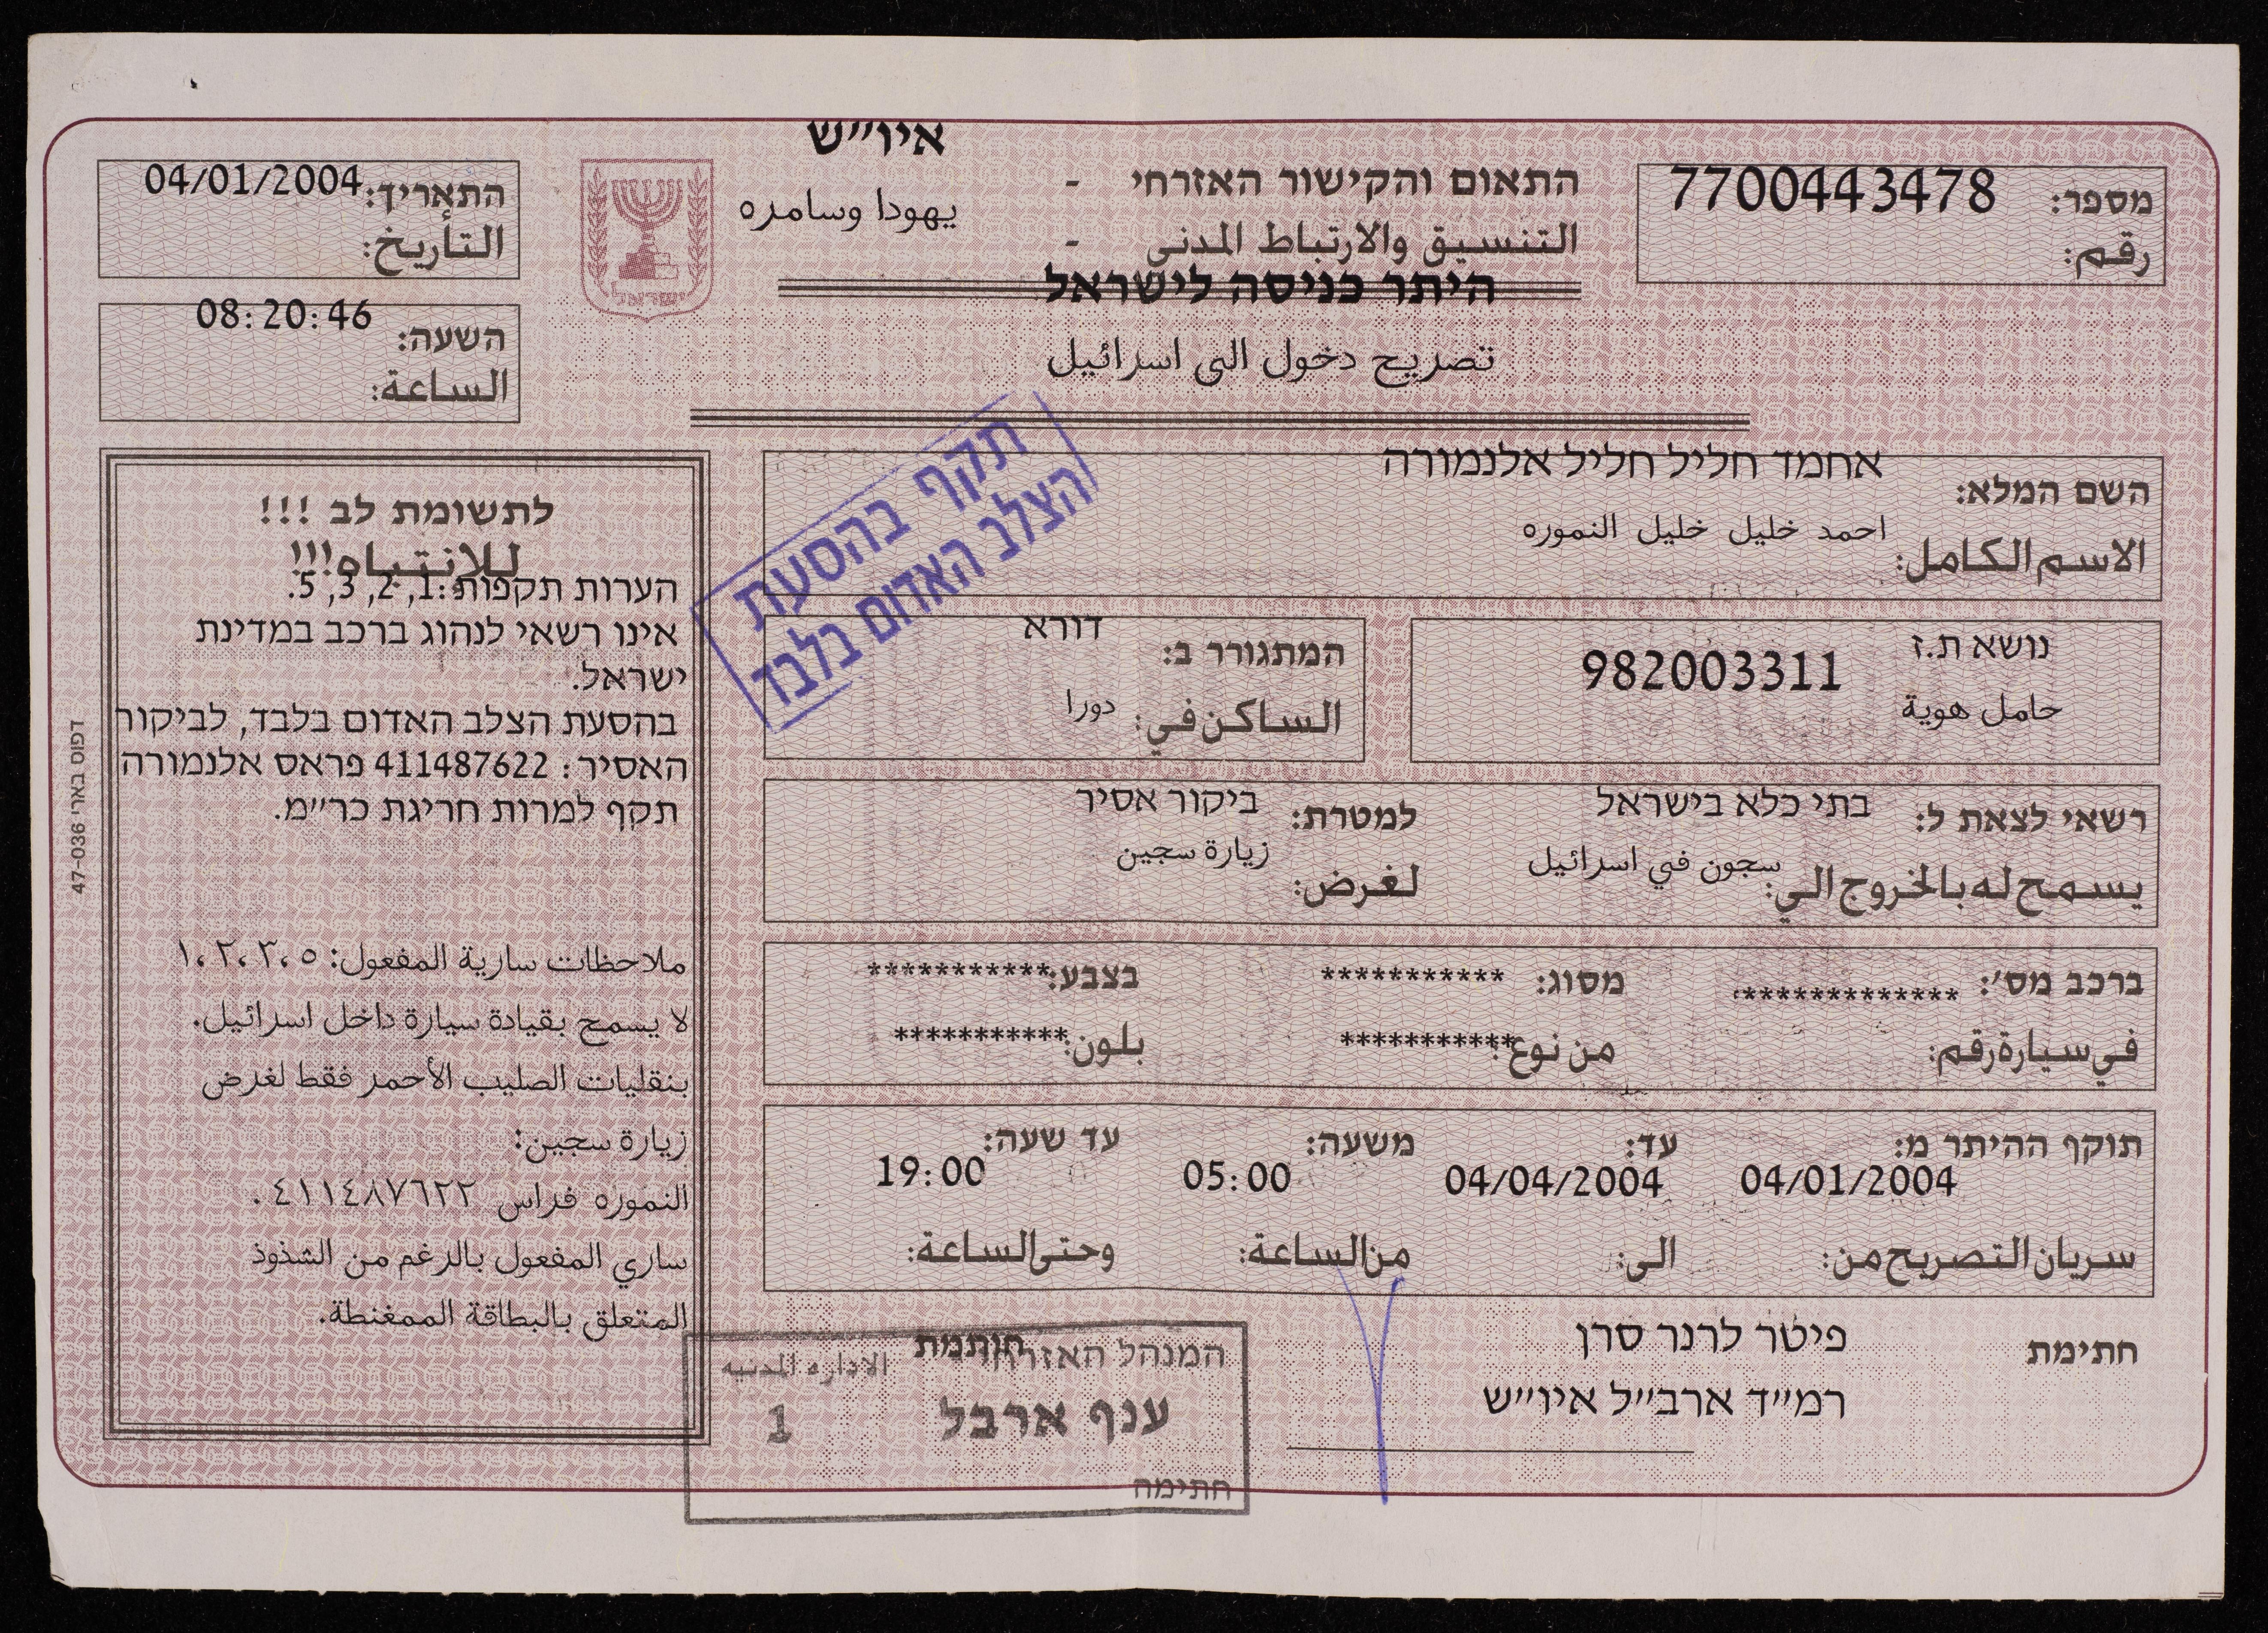 איו״ש
התאום והקישור האזרחי -
يهودا وسامره
التنسيق والارتباط المدني -
היתר כניסה לישראל
تصريح دخول الى اسرائيل
מספר: 7700443478
رقم:
התאריך: 04/01/2004
التأريخ:
השעה: 08:20:46
الساعة:
ישראל
השם המלא: אחמד חליל חליל אלנמורה
الاسم الكامل: احمد خليل خليل النموره
נושא ת.ז 982003311
حامل هوية
המתגורר ב: דורא
الساكن في: دورا
רשאי לצאת ל: בתי כלא בישראל
يسمح له بالخروج الي: سجون في اسرائيل
למטרת: ביקור אסיר
لغرض: زيارة سجين
ברכב מס׳: ************* מסוג: *********** בצבע: ***********
في سيارة رقم: من نوع: *********** بلون: ***********
תוקף ההיתר מ: עד: משעה: עד שעה:
04/01/2004 04/04/2004 05:00 19:00
سريان التصريح من: الى: من الساعة: وحتى الساعة:
חתימת פיטר לרנר סרן
רמ״ד ארב״ל איו״ש
חותמת
המנהל האזרחי الاداره المدنيه
ענף ארבל 1
חתימה
תקף בהסעת
הצלב האדום בלבד
לתשומת לב !!!
للانتباه!!!
הערות תקפות: 1, 2, 3, 5.
אינו רשאי לנהוג ברכב במדינת
ישראל.
בהסעת הצלב האדום בלבד, לביקור
האסיר: 411487622 פראס אלנמורה
תקף למרות חריגת כר״מ.
ملاحظات سارية المفعول: ١،٢،٣،٥
لا يسمح بقيادة سيارة داخل اسرائيل.
بنقليات الصليب الأحمر فقط لغرض
زيارة سجين:
النموره فراس ٤١١٤٨٧٦٢٢.
ساري المفعول بالرغم من الشذوذ
المتعلق بالبطاقة الممغنطة.
דפוס בארי 47-036